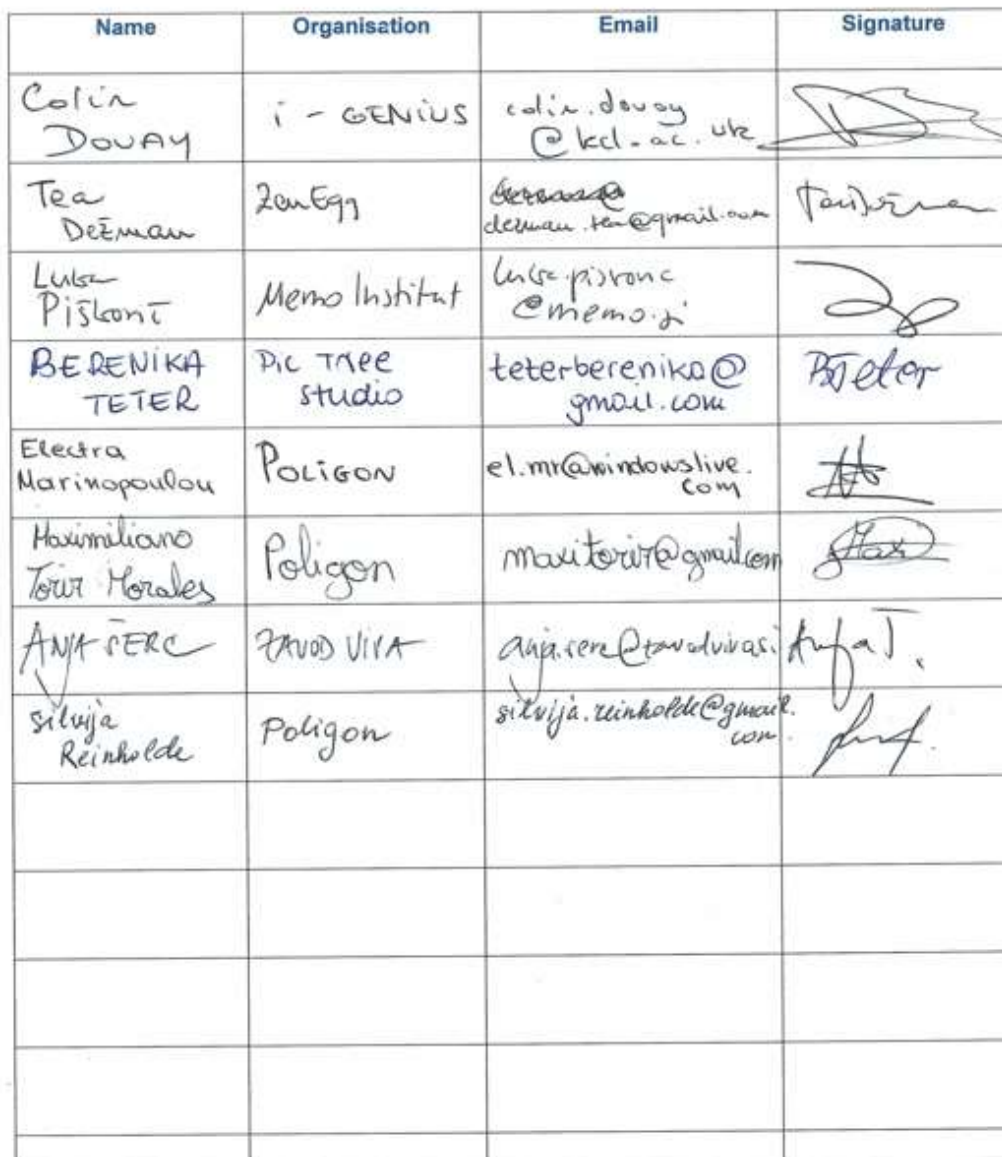 Name Organisation Email Signature
Colin
DOUAY
i - GENiUS
colin.douay
@kcl.ac.uk
Tea
DEŽman
ZenEgg
dezman.tea@gmail.com
Luka
Piškorič
Memo Institut
@memo.si
BERENIKA
TETER
Pic Tree
studio
teterberenika@
gmail.com
BTeter
Electra
Marinopoulou
POLiGON
el.mr@windowslive.
com
Maximiliano
Torir Morales
Poligon
maxitorir@gmail.com
Maxi
ANJA ŠERC
ZAVOD VIVA
silvija
Reinholde
Poligon
silvija.reinholde@gmail.
com